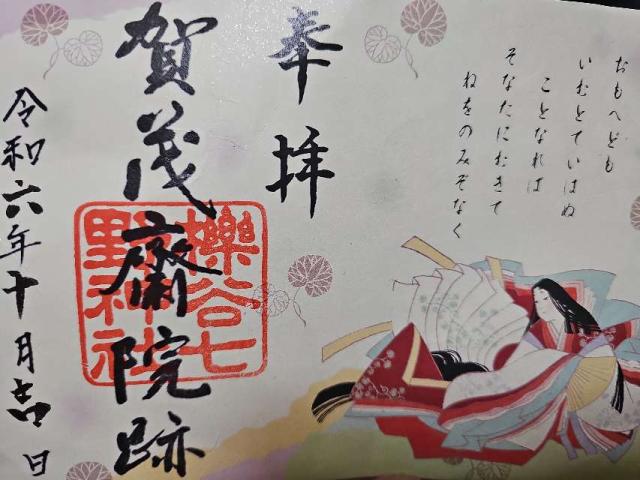 おもへども
いむとていはぬ
ことなれば
そなたにむきて
ねをのみぞなく
奉拝
賀茂齋院跡
櫟谷七
野神社
令和六年十月吉日